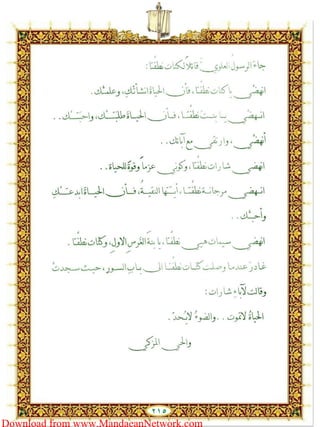 جاءَ الرسولُ العلويُّ قائلاً لكنات نطفتا:
انهضي يا كنات نطفتا، فأن الحياة انشأتكِ، وعلمتكِ.
انهضي يا بنت نطفتا، فأن الحياة طلبتكِ، واحبتكِ..
أنهضي، وارتقي مع آبائكِ..
انهضي شارات نطفتا، وكوني عزماً وقوةً للحياة..
انهضي مرجانة نطفتا، أيتها النقية، فأن الحياة ابدعتكِ
وأحبتكِ..
انهضي سيمات هيي نطفتا، يا بنة الغرس الاول، وكنات نطفتا.
غادر عندما وصلت كنات نطفتا الى باب السور، حيث سجدت
وقالت لآباء شارات:
الحياةُ لاتموت.. والضوءُ لايُحدّ.
والحي المزكي
٢١٥
Download from www.MandaeanNetwork.com